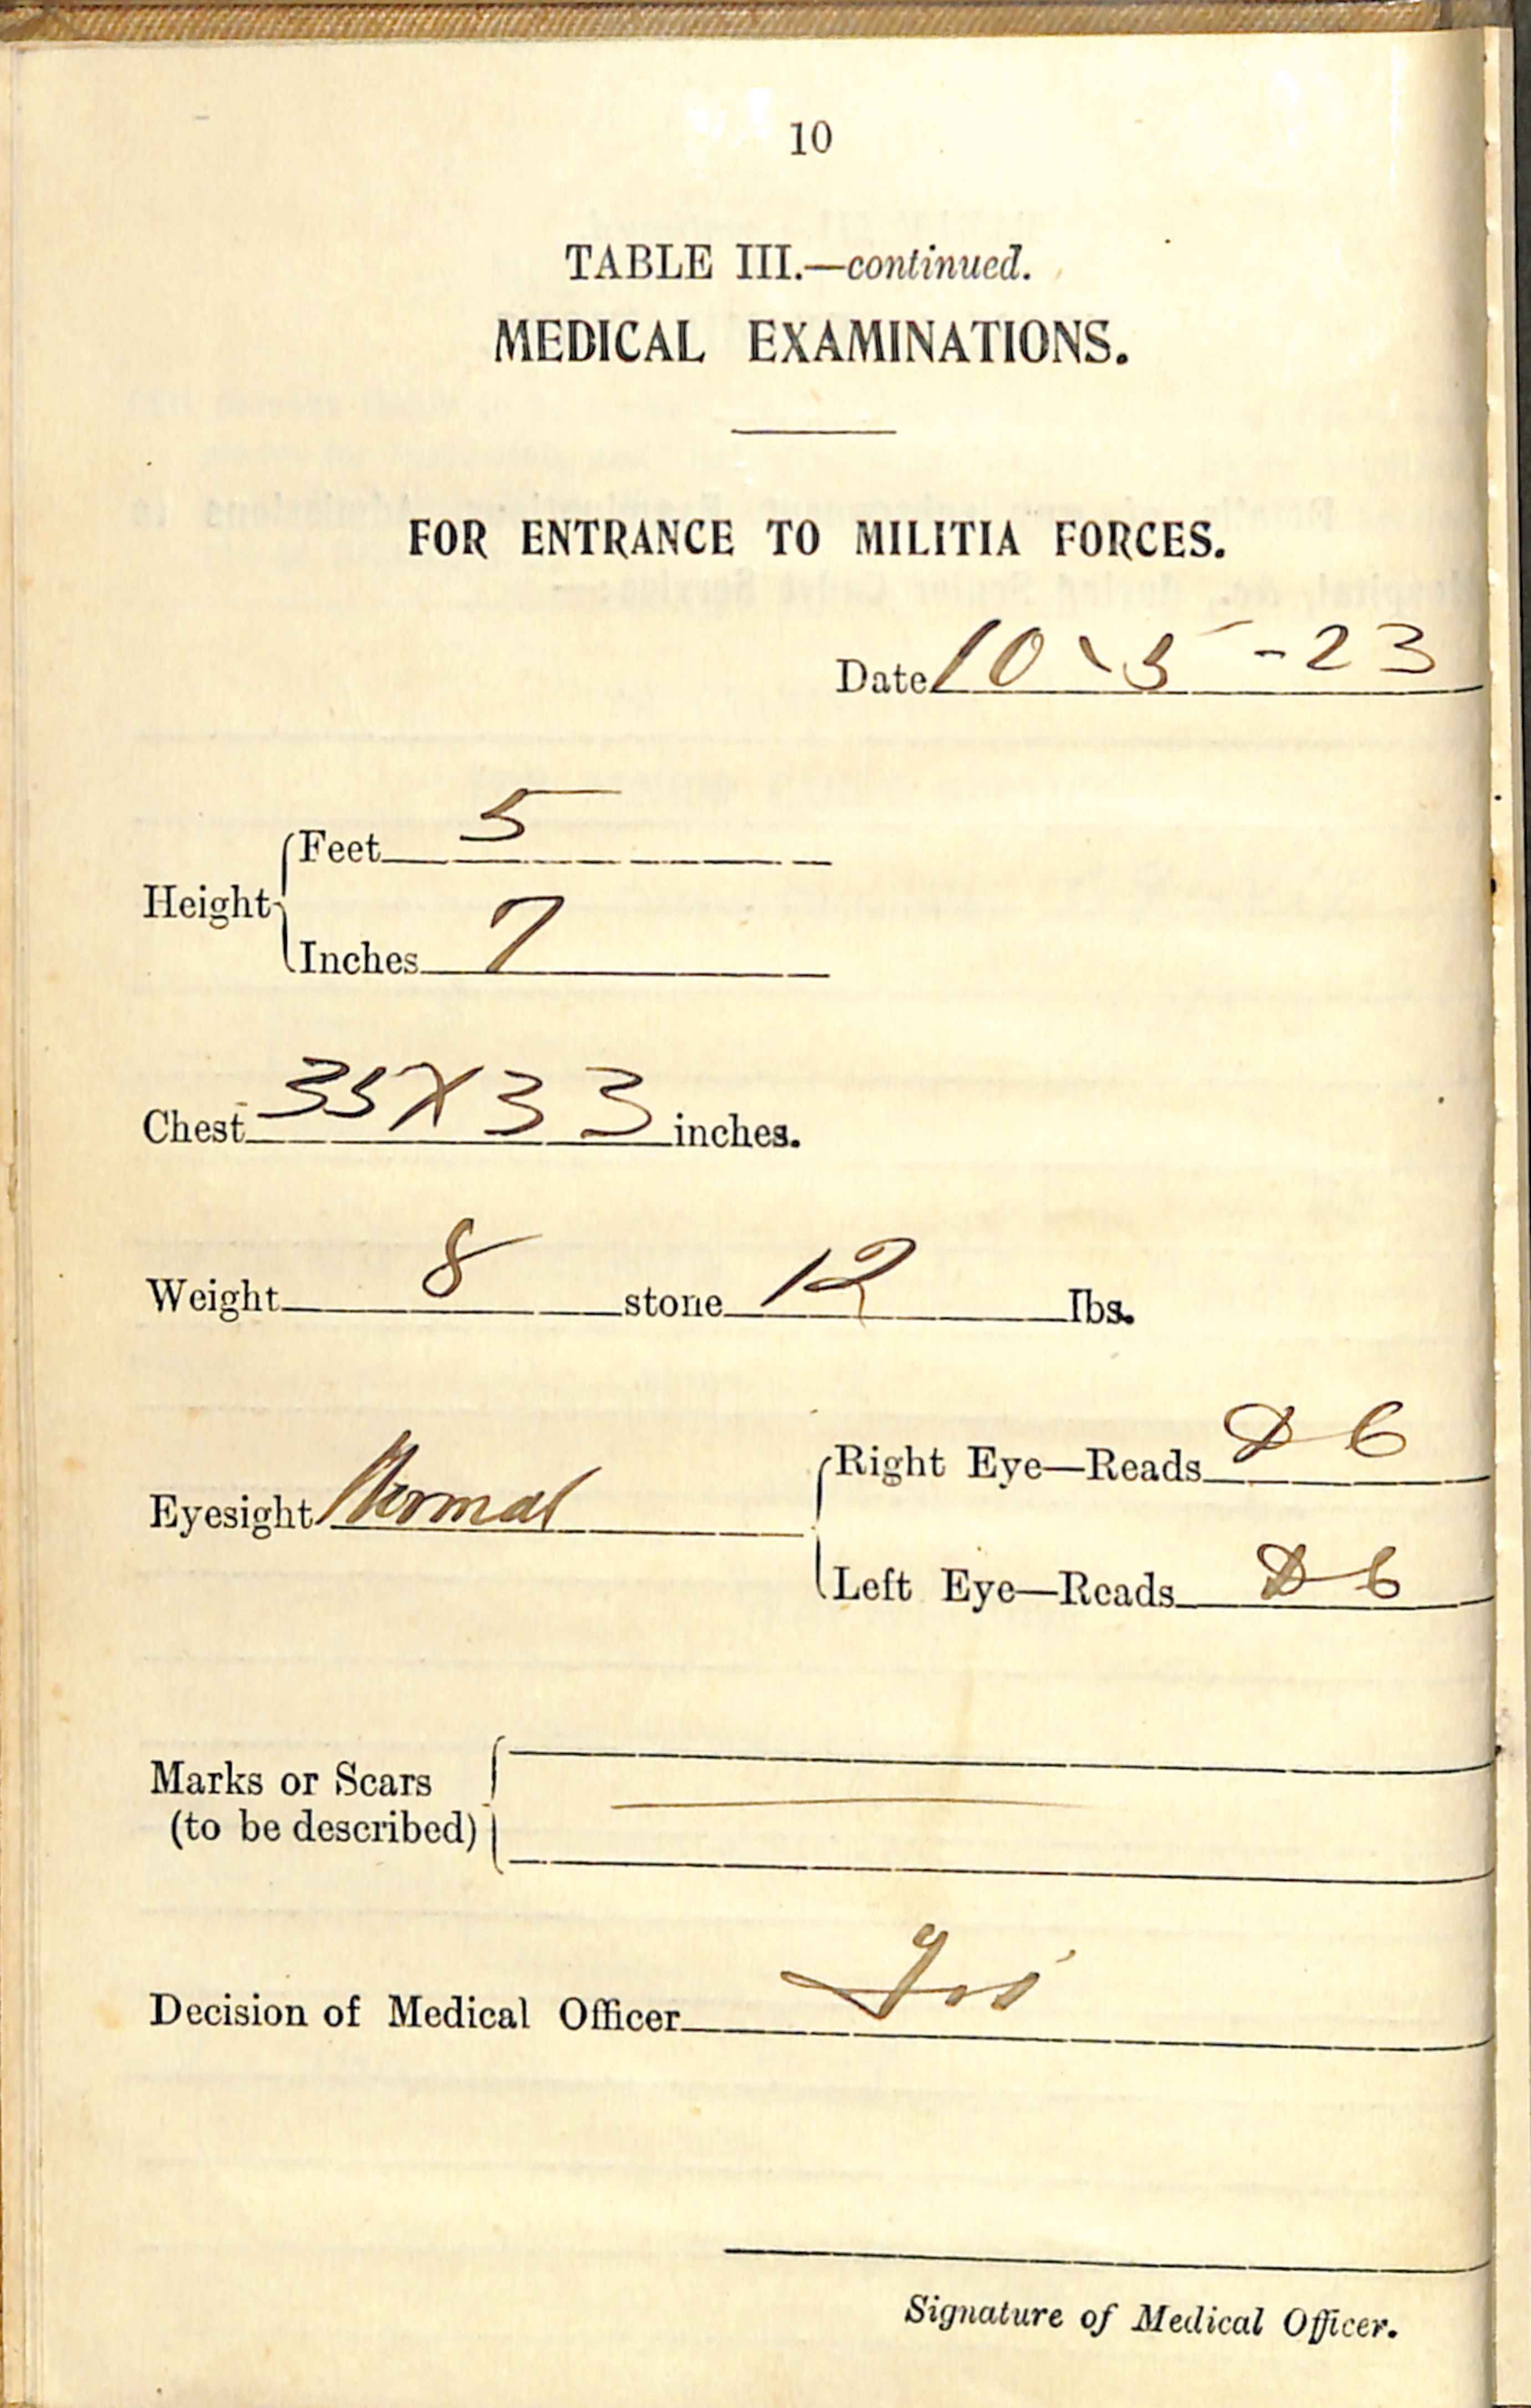 10
TABLE III.—continued.
MEDICAL EXAMINATIONS.
FOR ENTRANCE TO MILITIA FORCES.
Date 10-5-23
Height
Feet 5
Inches 7
Chest 35X33 inches.
Weight 8 stone 12 lbs.
Eyesight Normal
Right Eye—Reads D 6
Left Eye—Reads D 6
Marks or Scars
(to be described)
Decision of Medical Officer
Signature of Medical Officer.